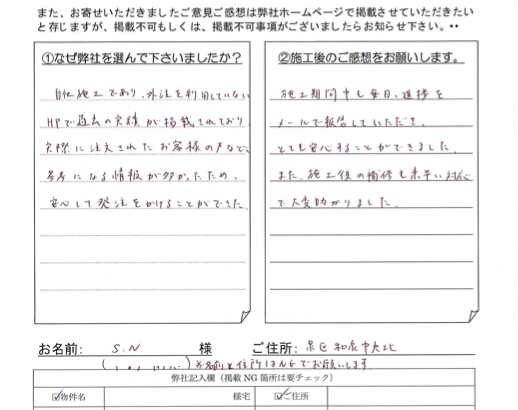 また、お寄せいただきましたご意見ご感想は弊社ホームページで掲載させていただきたい
と存じますが、掲載不可もしくは、掲載不可事項がございましたらお知らせ下さい。••
①なぜ弊社を選んで下さいましたか？
自社施工であり、外注を利用していない
HPで過去の実績が掲載されており、
実際に注文されたお客様の声など、
参考になる情報が多かったため、
安心して発注をかけることができた
②施工後のご感想をお願いします。
施工期間中も毎日、進捗を
メールで報告していただき、
とても安心することができました。
また、施工後の補修も素早い対応
で大変助かりました。
お名前: S.N 様 ご住所: 泉区和泉中央北
※名前と住所はんGでお願いします
弊社記入欄（掲載 NG 箇所は要チェック）
☑物件名 様宅 ☑ご住所